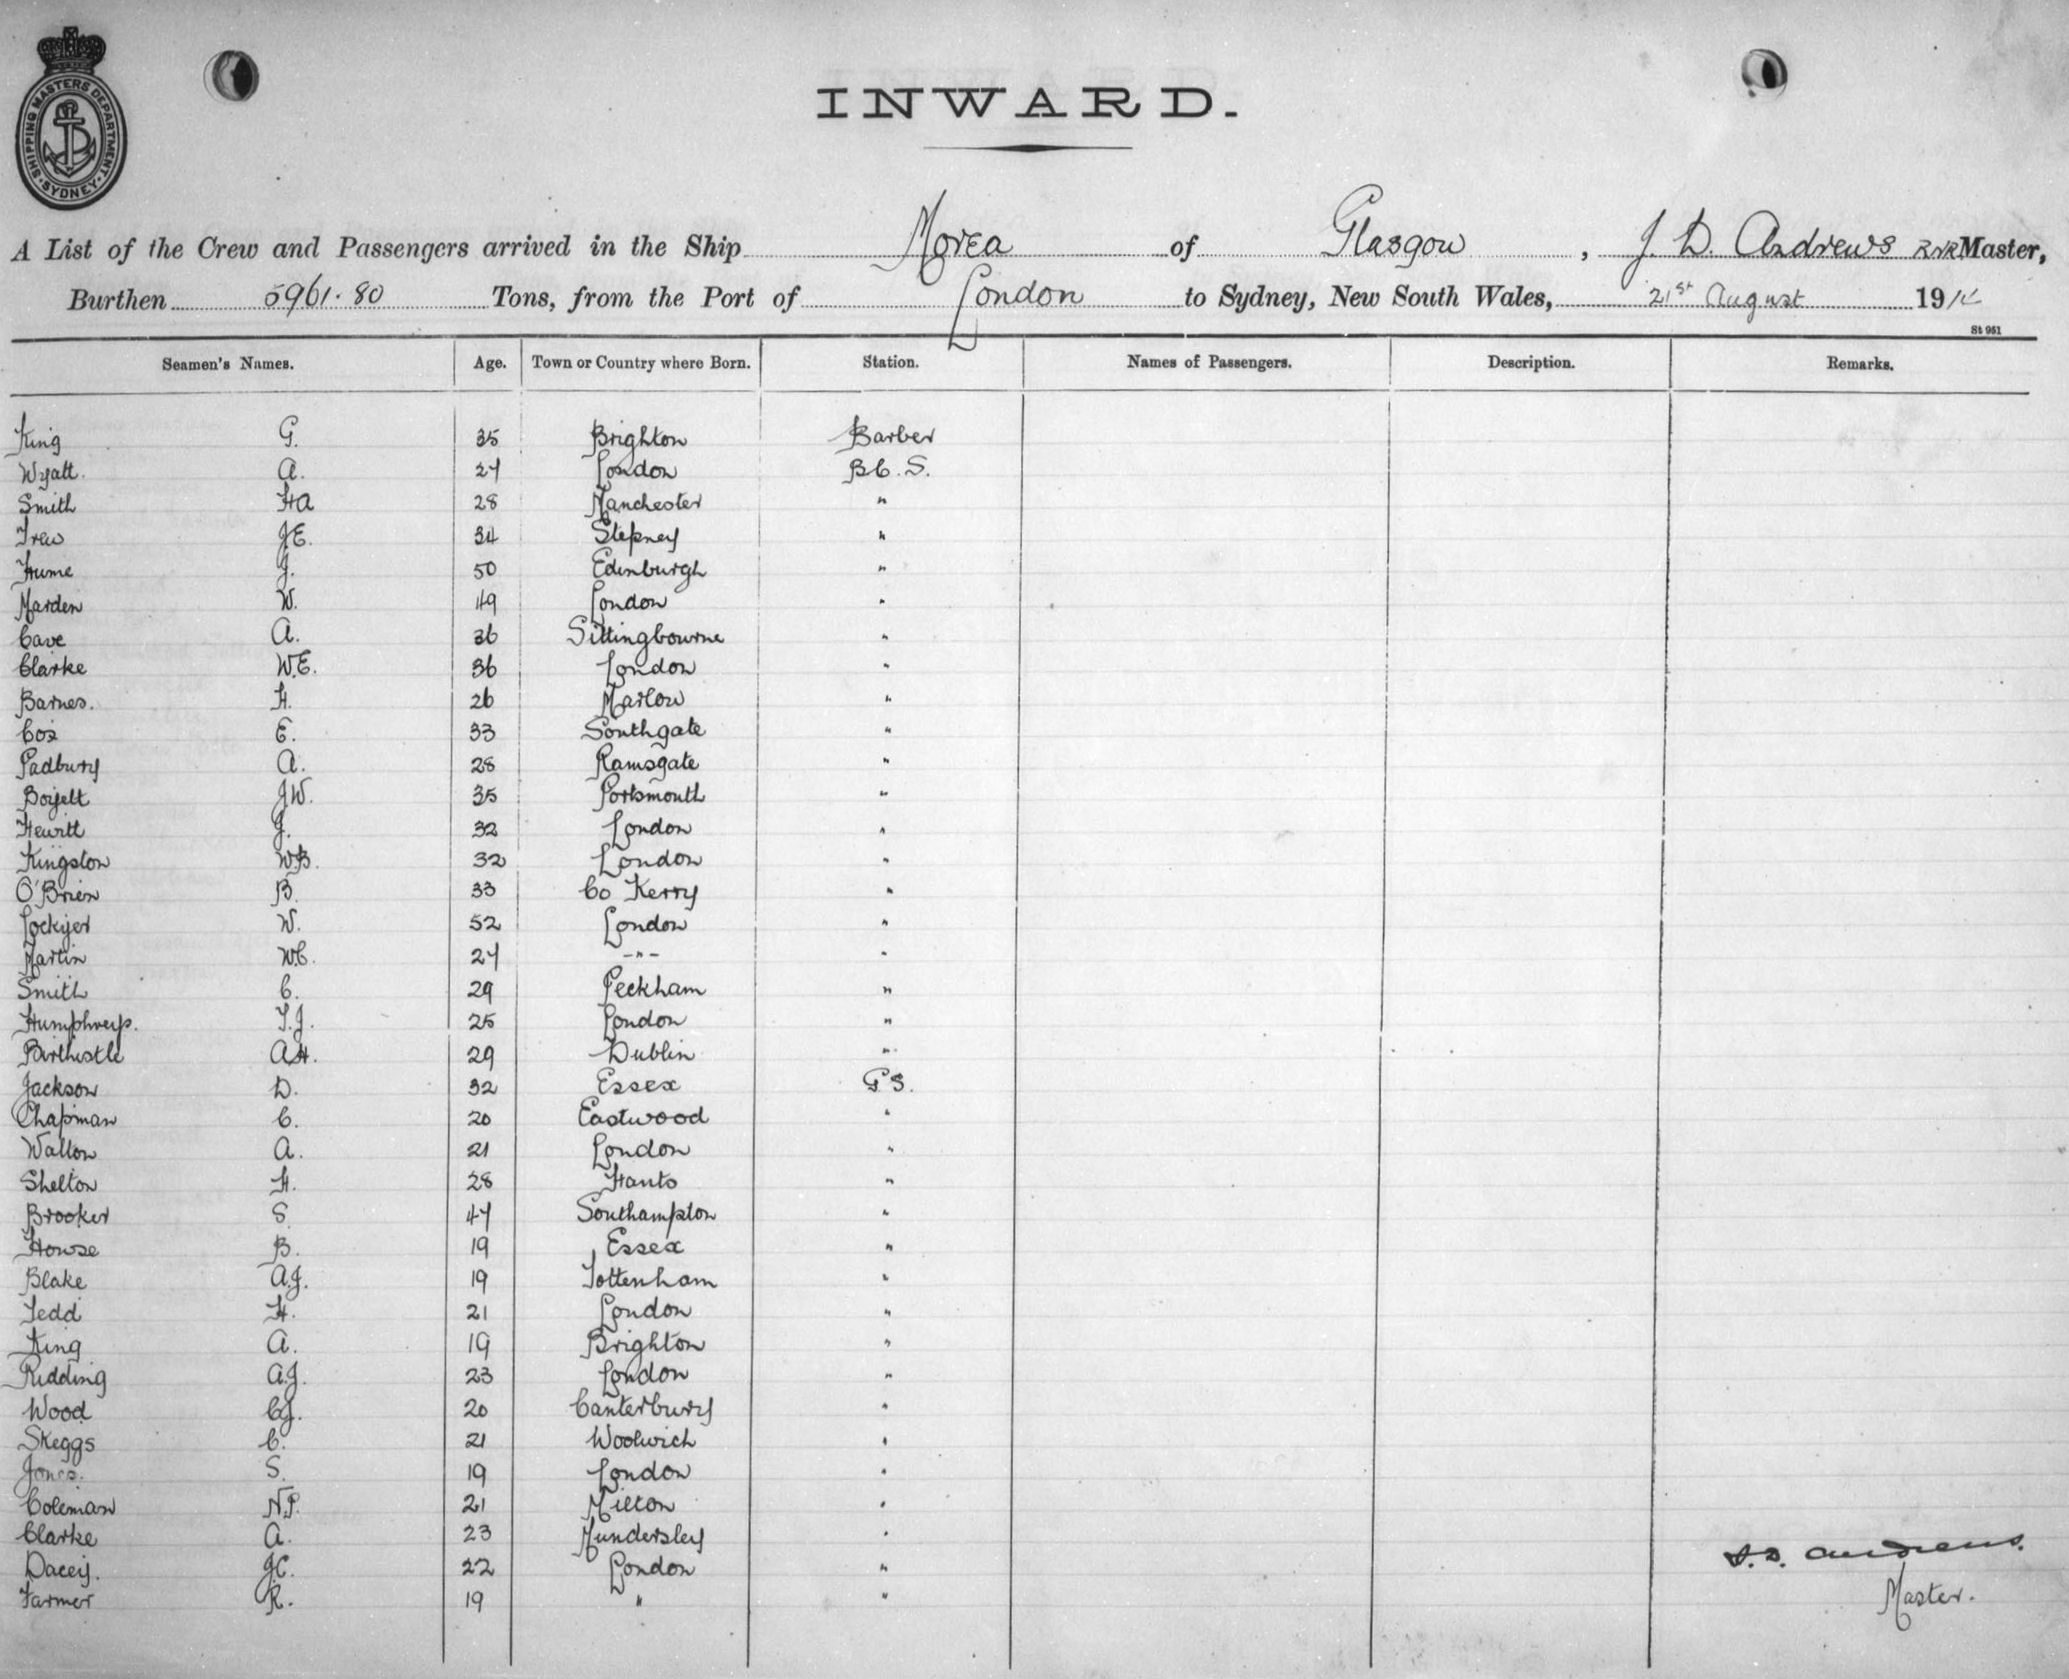 SHIPPING MASTERS DEPARTMENT · SYDNEY ·
INWARD.
A List of the Crew and Passengers arrived in the Ship Morea of Glasgow, J. D. Andrews RNR Master,
Burthen 5961.80 Tons, from the Port of London to Sydney, New South Wales, 21st August 191
St 951
Seamen's Names. Age. Town or Country where Born. Station. Names of Passengers. Description. Remarks.
King G. 35 Brighton Barber
Wyatt. A. 27 London B.C.S.
Smith HA 28 Manchester "
Trew J.E. 34 Stepney "
Hume J. 50 Edinburgh "
Marden W. 49 London "
Cave A. 36 Sittingbourne "
Clarke W.E. 36 London "
Barnes. H. 26 Marlow "
Cox E. 33 Southgate "
Padbury A. 28 Ramsgate "
J.W. 35 Portsmouth "
Hewitt J. 32 London "
Kingston W.B. 32 London "
O'Brien B. 33 Co Kerry "
Lockyer W. 52 London "
Martin W.C. 27 -"- "
Smith C. 29 Peckham "
Humphreys. T.J. 25 London "
Birthistle A.H. 29 Dublin "
Jackson D. 32 Essex G.S.
Chapman C. 20 Eastwood "
Walton A. 21 London "
Shelton H. 28 Hants "
Brooker S. 47 Southampton "
Howse B. 19 Essex "
Blake A.J. 19 Tottenham "
Tedd H. 21 London "
King A. 19 Brighton "
Ridding A.J. 23 London "
Wood C.J. 20 Canterbury "
Skeggs C. 21 Woolwich "
Jones. S. 19 London "
Coleman N.P. 21 Milton "
Clarke A. 23 Mundersley "
Dacey. J.C. 22 London "
Farmer R. 19 " "
J. D. Andrews.
Master.